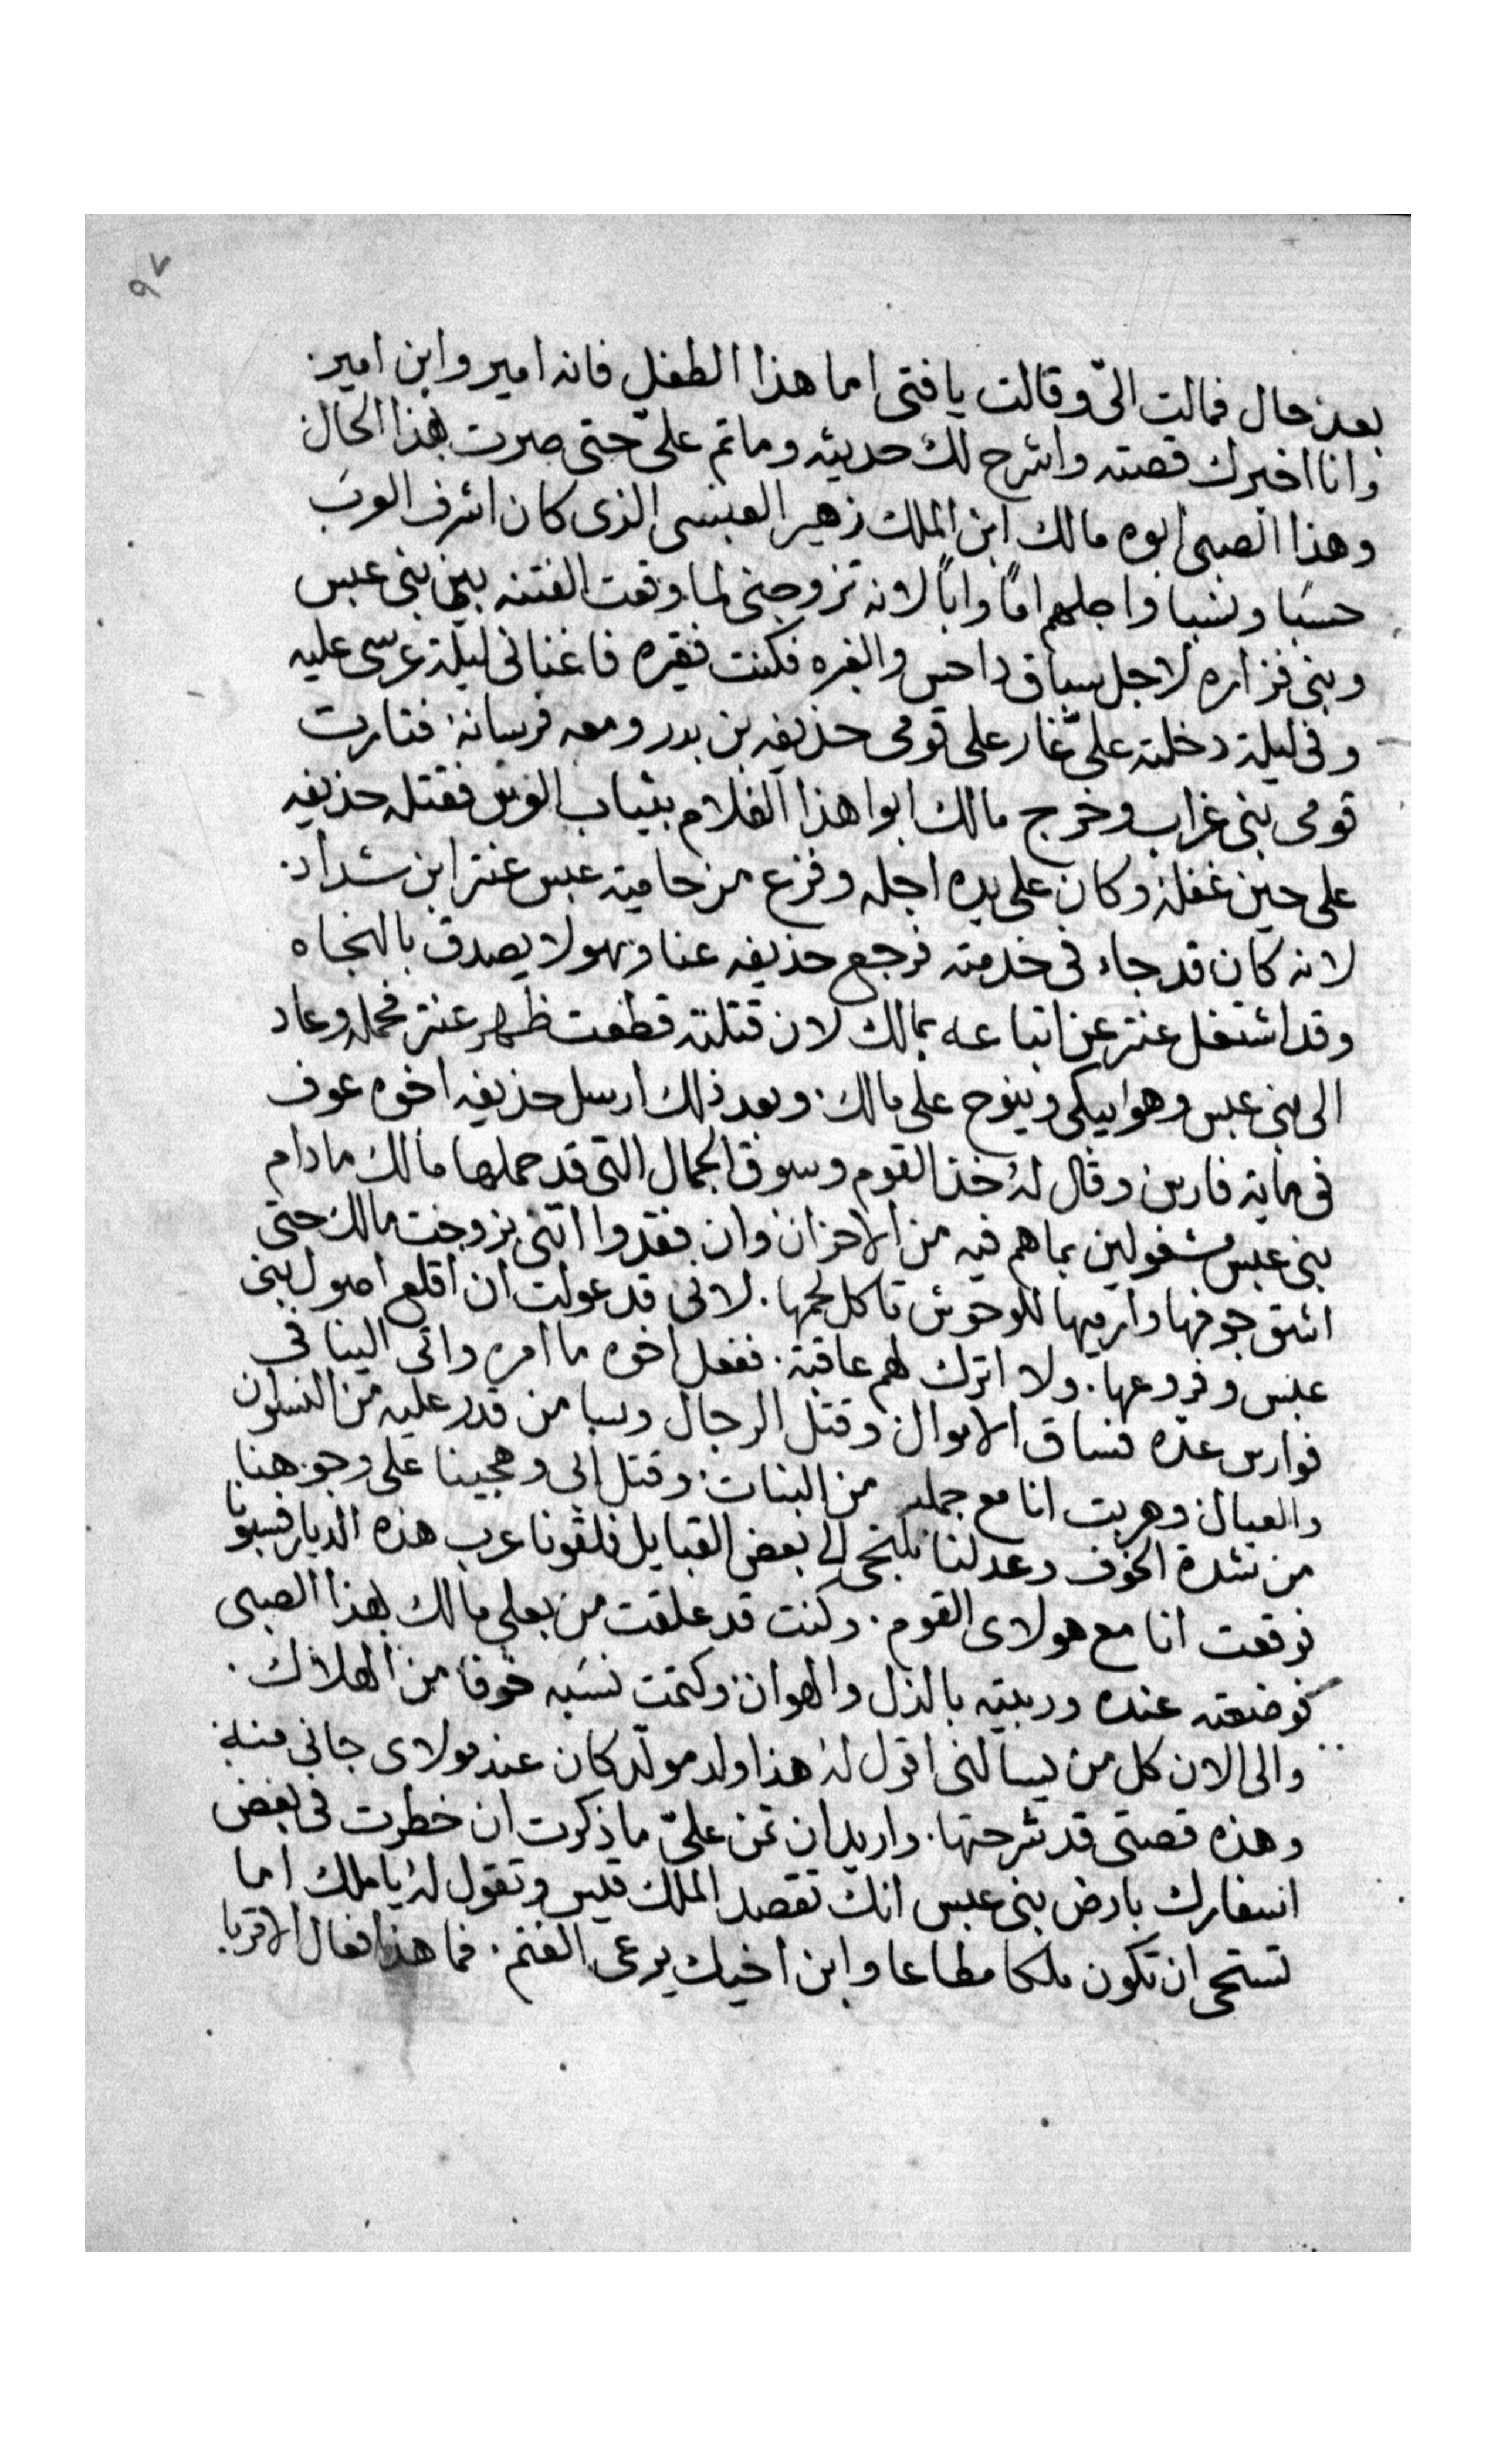 ٩٧
بعد حال فمالت اليّ وقالت يا فتى اما هذا الطفل فانه امير وابن امير.
وانا اخبرك قصته واشرح لك حديثه وما تم عليّ حتى صرت بهذا الحال
وهذا الصبي ابوه مالك ابن الملك زهير العبسي الذي كان اشرف العرب
حسبا ونسبا واجلهم امًا وابًا لانه تزوجني لما وقعت الفتنه بين بني عبس
وبني فزاره لاجل سباق داحس والغبره فكنت فقيره فاغناني ليلة عرسي عليه
وفي ليلة دخلته عليّ غار على قومي حذيفه بن بدر ومعه فرسانه فثارت
قومي بني غراب وخرج مالك ابوا هذا الغلام بثياب العرس فقتله حذيفه
على حين غفله وكان على يده اجله وفزع من حامية عبس عنتر ابن شداد.
لانه كان قد جاء في خدمته فرجع حذيفه عنا وهو لا يصدق بالنجاه
وقد اشتغل عنتر عن اتباعه بمالك لان قتلته قطعت ظهر عنتر فحمله وعاد
الى بني عبس وهو ايبكي وينوح على مالك. وبعد ذلك ارسل حذيفه اخوه عوف
في ماية فارس وقال له خذ القوم وسوق الجمال التي قد حملها مالك ما دام
بني عبس مشغولين بما هم فيه من الاحزان وان فقدوا اتني بزوجت مالك حتى
اشق جوفها وارميها للوحوش تاكل لحمها. لاني قد عولت ان اقلع اصول بني
عبس وفروعها. ولا اترك لهم عاقبة. ففعل اخوه ما امره واتى الينا في
فوارس عدّه فساق الاموال وقتل الرجال وسبا من قدر عليه من النسوان
والعيال وهربت انا مع جمله من البنات. وقتل ابي وهجينا على وجوهنا
من شدة الخوف وعدلنا نلتجي الى بعض القبايل فلقونا عرب هذه الديار فسبونا
فوقعت انا مع هولاى القوم. وكنت قد علقت من بعلي مالك بهذا الصبي
فوضعته عنده وربيته بالذل والهوان. وكتمت نسبه خوفا من الهلاك.
والى الان كل من يسالني اقول له هذا ولد مولّد كان عند مولاى جاني منه
وهذه قصتي قد شرحتها. واريد ان تمن عليّ ما ذكرت ان خطرت في بعض
اسفارك بارض بني عبس انك تقصد الملك قيس وتقول له يا ملك اما
تستحي ان تكون ملكا مطاعا وابن اخيك يرعى الغنم. فما هذا فعال الاقربا